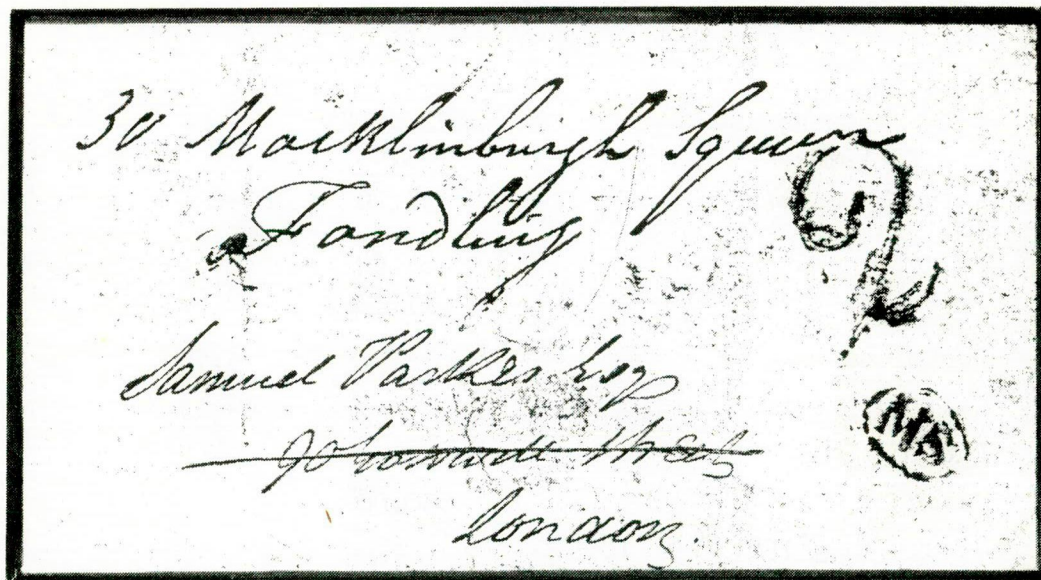 30 Macklinburgh Square
Fondling
2
Samuel Parkes Esq
London
MS